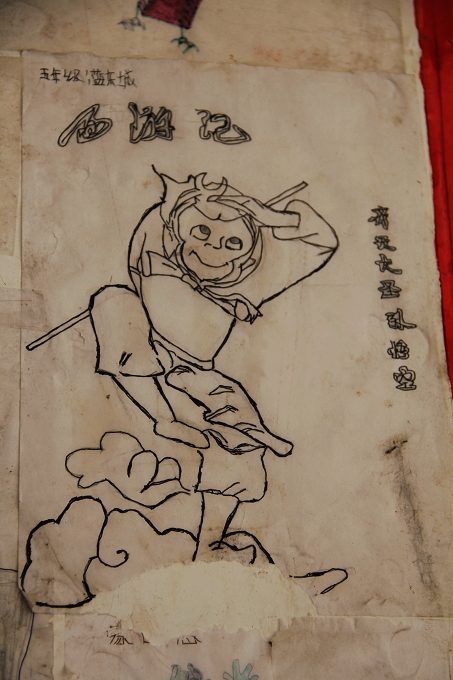 五年级 蓝东城
西游记
齐天大圣孙悟空